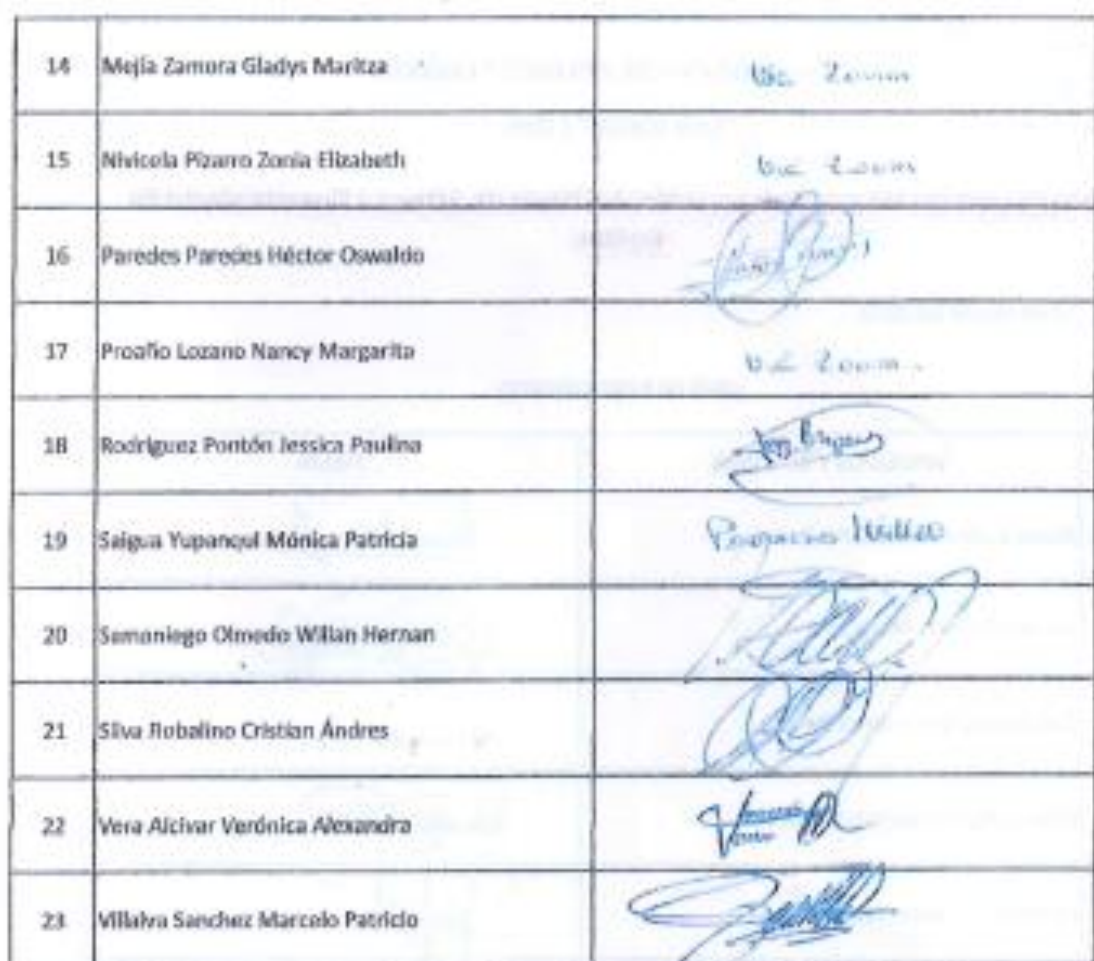 14 Mejía Zamora Gladys Maritza Vía Zoom
15 Nivicela Pizarro Zonia Elizabeth Vía Zoom
16 Paredes Paredes Héctor Oswaldo
17 Proaño Lozano Nancy Margarita Vía Zoom.
18 Rodríguez Pontón Jessica Paulina
19 Saigua Yupanqui Mónica Patricia
20 Samaniego Olmedo Willan Hernan
21 Silva Robalino Cristian Ándres
22 Vera Alcivar Verónica Alexandra
23 Villalva Sanchez Marcelo Patricio